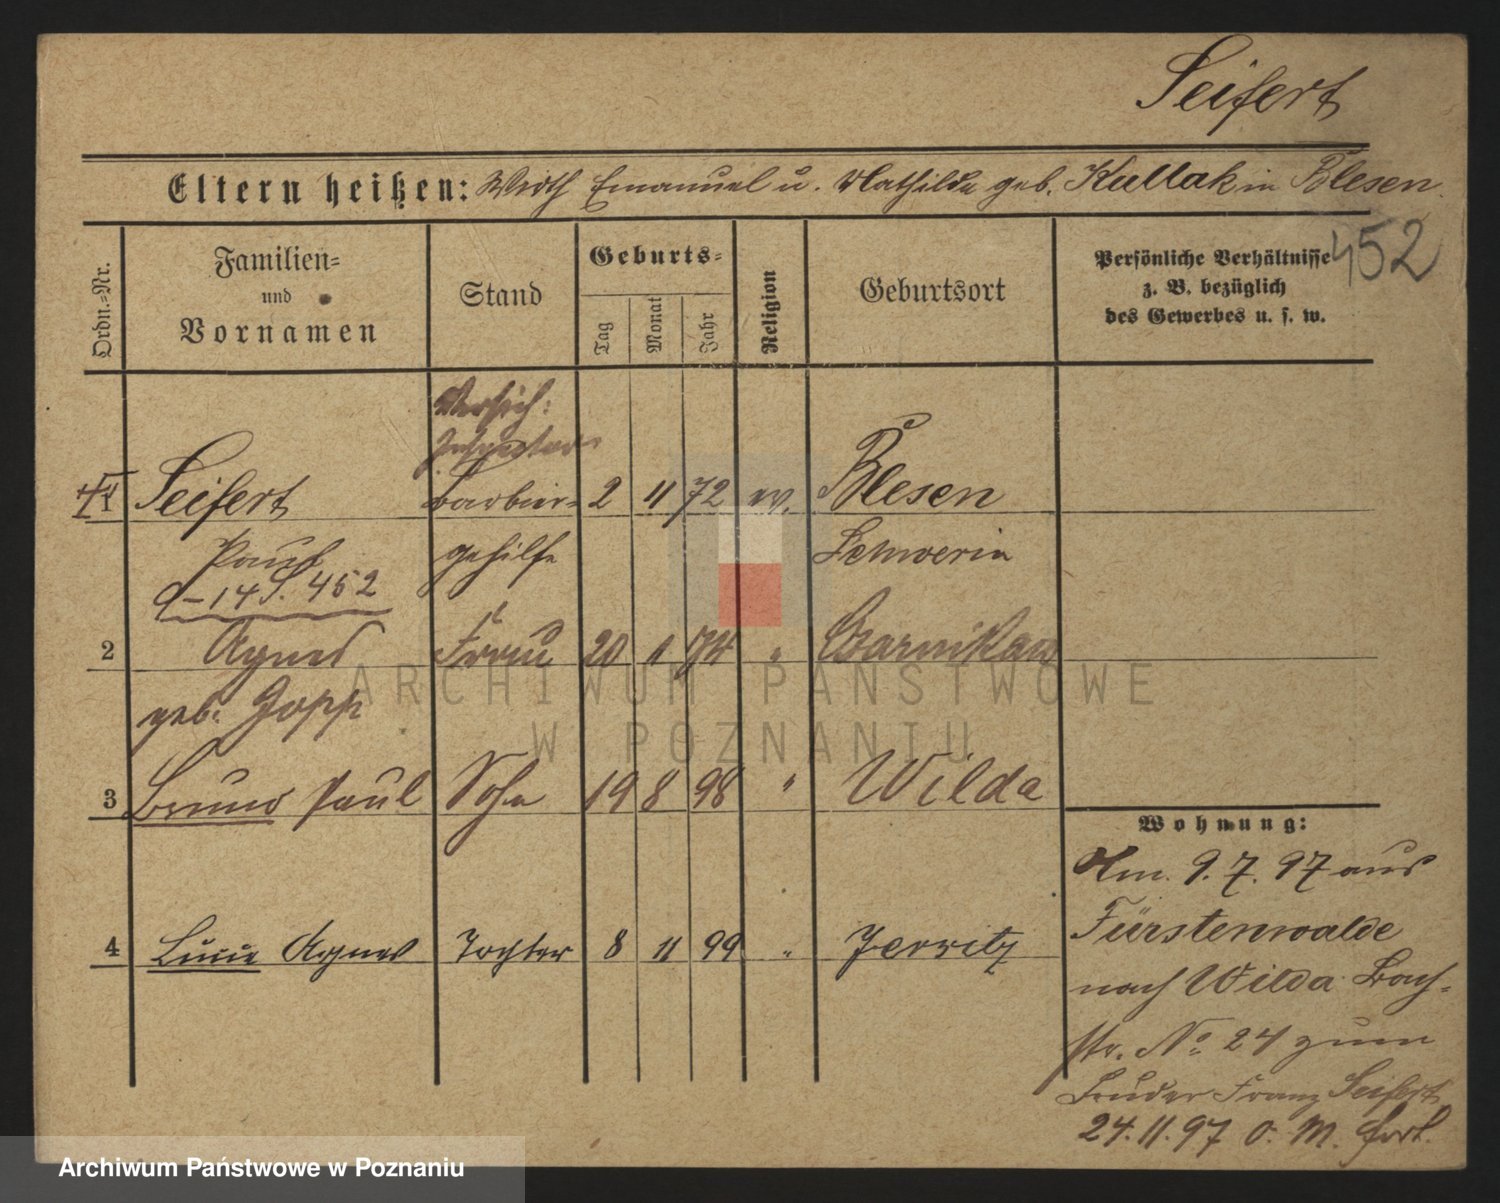 Seifert
Eltern heißen: Wirth Emanuel u. Mathilde geb. Kullak in Blesen.
452
Ordn.-Nr.
Familien-
und
Vornamen
Stand
Geburts-
Tag
Monat
Jahr
Religion
Geburtsort
Persönliche Verhältnisse
z. B. bezüglich
des Gewerbes u. s. w.
Versich:
Inspector
1 Seifert Barbier- 2 11 72 ev. Blesen
Paul gehilfe Schwerin
14 S. 452
2 Agnes Frau 20 1 74 " Czarnikau
geb. Gopp
3 Bruno Paul Sohn 19 8 98 " Wilda
4 Lucie Agnes Tochter 8 11 99 " Jerzitz
Wohnung:
Am. 9.7.97 aus
Fürstenwalde
nach Wilda Bach-
str. No 24 zum
Bruder Franz Seifert
24.11.97 o. M. fort.
ARCHIWUM PAŃSTWOWE
W POZNANIU
Archiwum Państwowe w Poznaniu